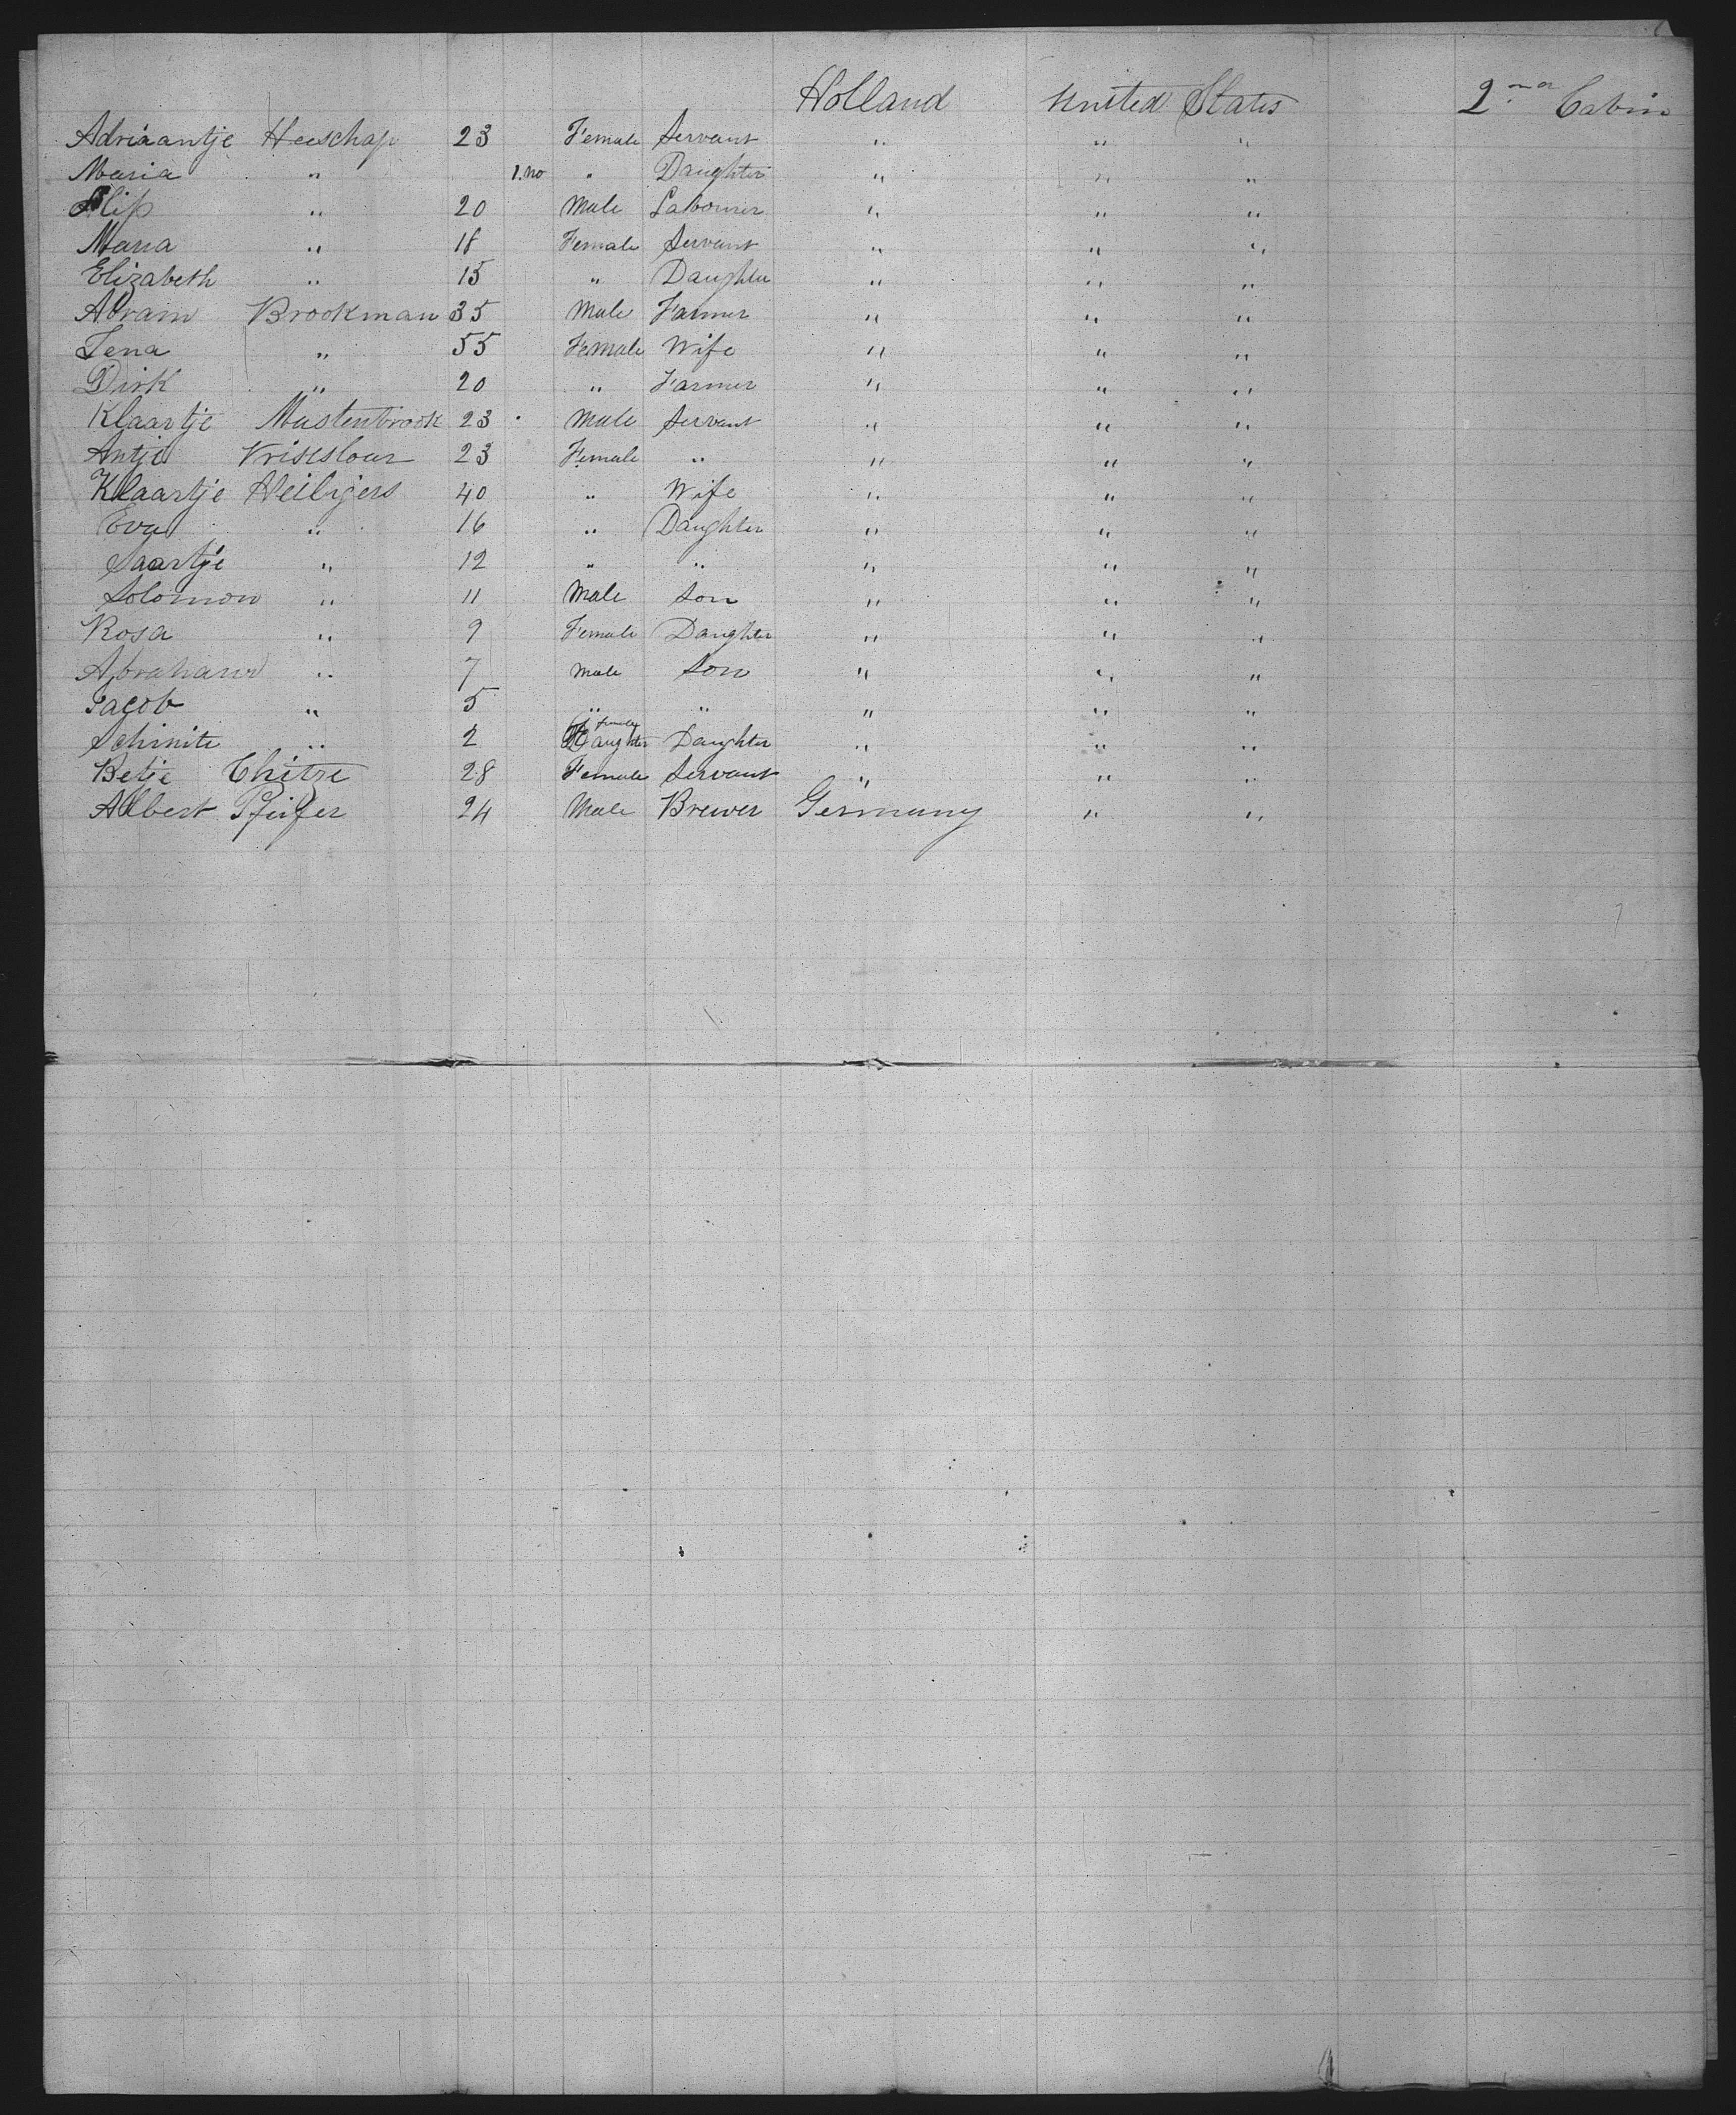 Holland United States 2nd Cabin
Adriaantje Heeschap 23 Female Servant " " "
Maria " 1.mo " Daughter " " "
Flip " 20 Male Labourer " " "
Maria " 18 Female Servant " " "
Elizabeth " 15 " Daughter " " "
Abram Brookman 35 Male Farmer " " "
Lena " 55 Female Wife " " "
Dirk " 20 " Farmer " " "
Klaartje Mastenbrook 23 Male Servant " " "
Antje 23 Female " " " "
Klaartje Heiligers 40 " Wife " " "
Eva " 16 " Daughter " " "
Saartje " 12 " " " " "
Solomon " 11 Male Son " " "
Rosa " 9 Female Daughter " " "
Abraham " 7 Male Son " " "
Jacob " 5 " " " " "
" 2 Daughter female Daughter " " "
Betje 28 Female Servant " " "
Albert Pfeifer 24 Male Brewer Germany " "